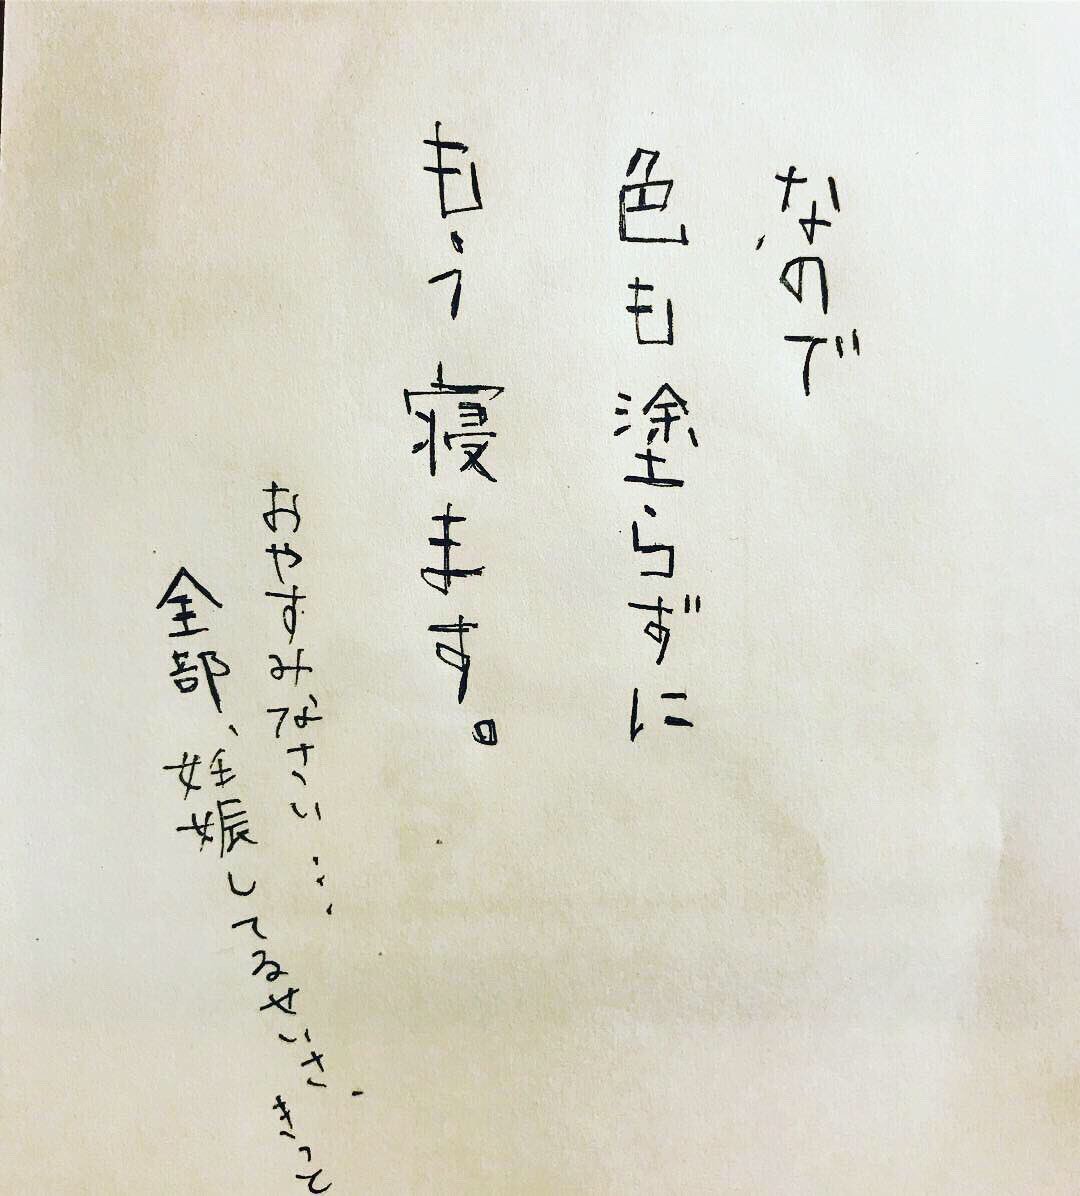 なので
色も塗らずに
もう寝ます。
おやすみなさい…
全部、妊娠してるせいさ
きっと